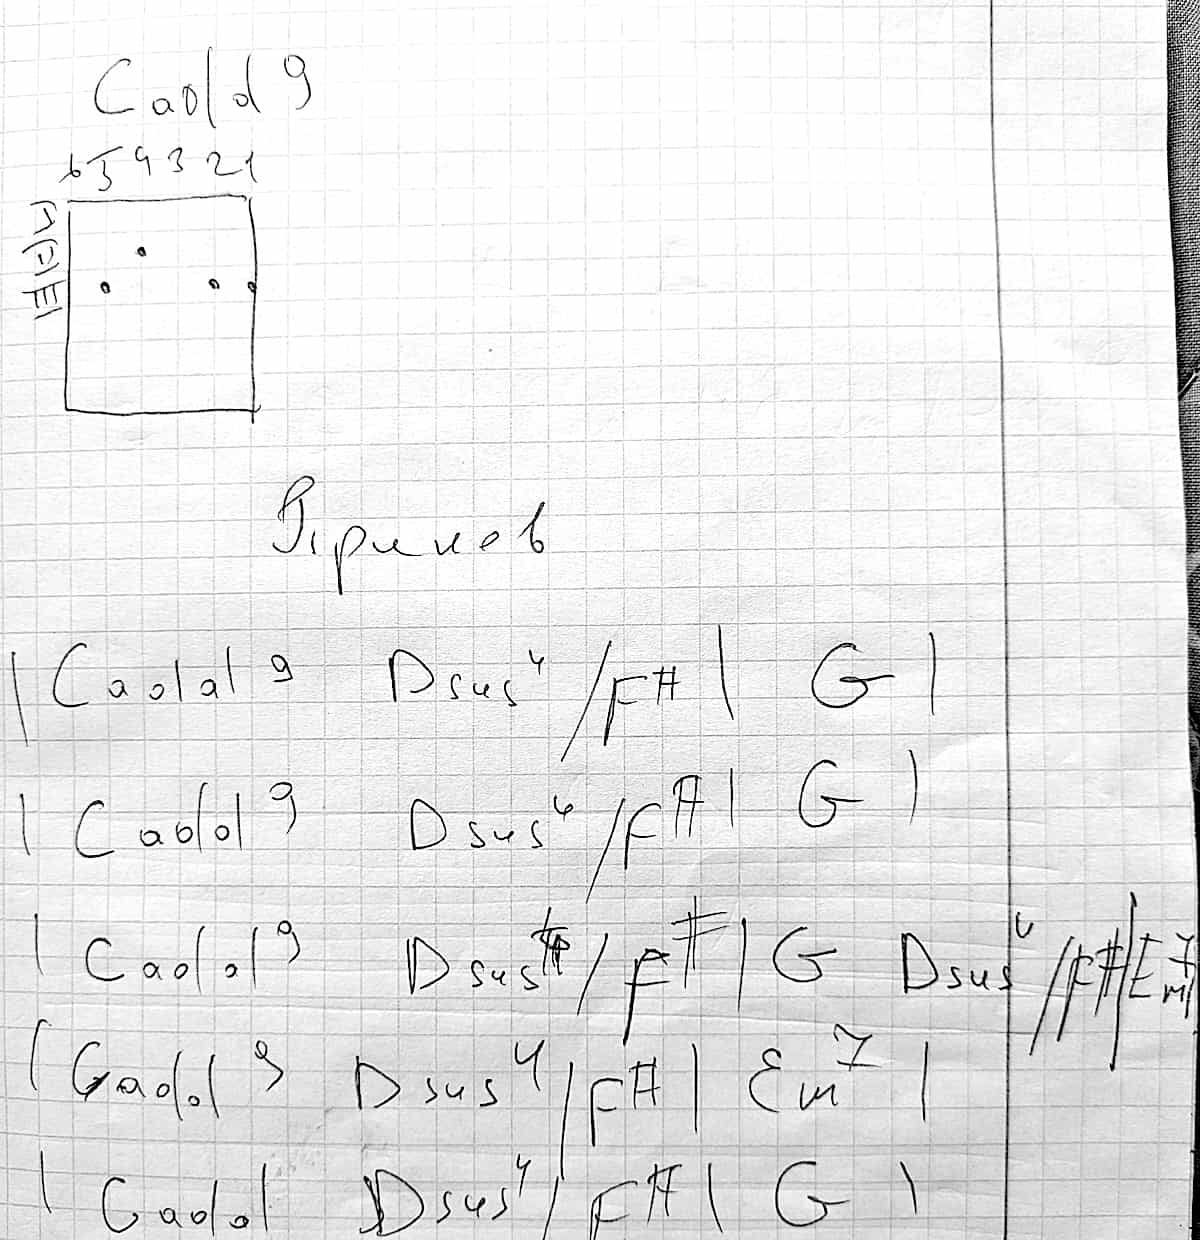 Cadd9
6 5 4 3 2 1
I
II
III
Припев
| Cadd9 Dsus4/F# | G |
| Cadd9 Dsus4/F# | G |
| Cadd9 Dsus4/F# | G Dsus4/F# | Em7
| Cadd9 Dsus4/F# | Em7 |
| Cadd Dsus4/F# | G |